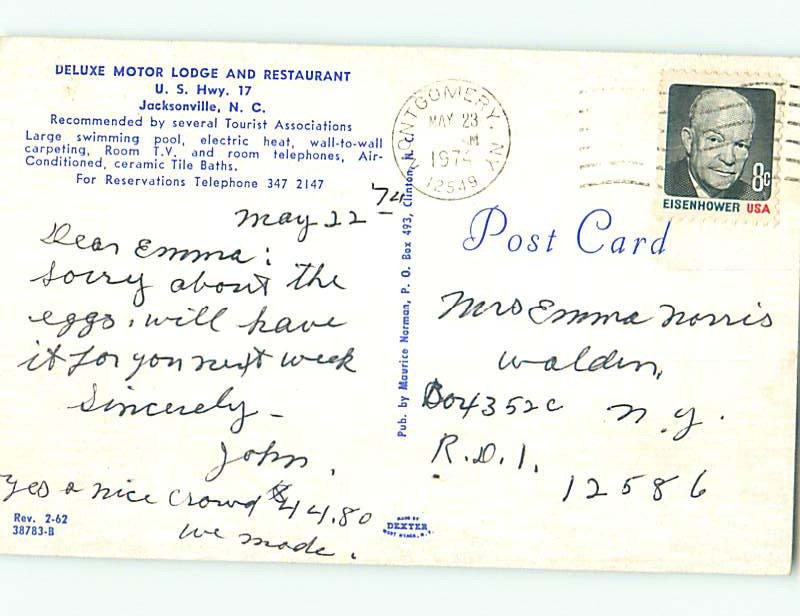 DELUXE MOTOR LODGE AND RESTAURANT
U. S. Hwy. 17
Jacksonville, N. C.
Recommended by several Tourist Associations
Large swimming pool, electric heat, wall-to-wall
carpeting, Room T.V. and room telephones, Air-
Conditioned, ceramic Tile Baths.
For Reservations Telephone 347 2147
May 22 - 74
Dear Emma:
Sorry about the
eggs. will have
it for you next week
Sincerely -
John.
Yes a nice crowd $44.80
we made.
Rev. 2-62
38783-B
Pub. by Maurice Norman, P. O. Box 493, Clinton, N. C.
MADE BY
DEXTER
WEST NYACK, N.Y.
MONTGOMERY, NY
MAY 23
M
1974
12549
8c
EISENHOWER USA
Post Card
Mrs Emma Norris
Walden,
Box 4352C N.Y.
R.D.1.
12586